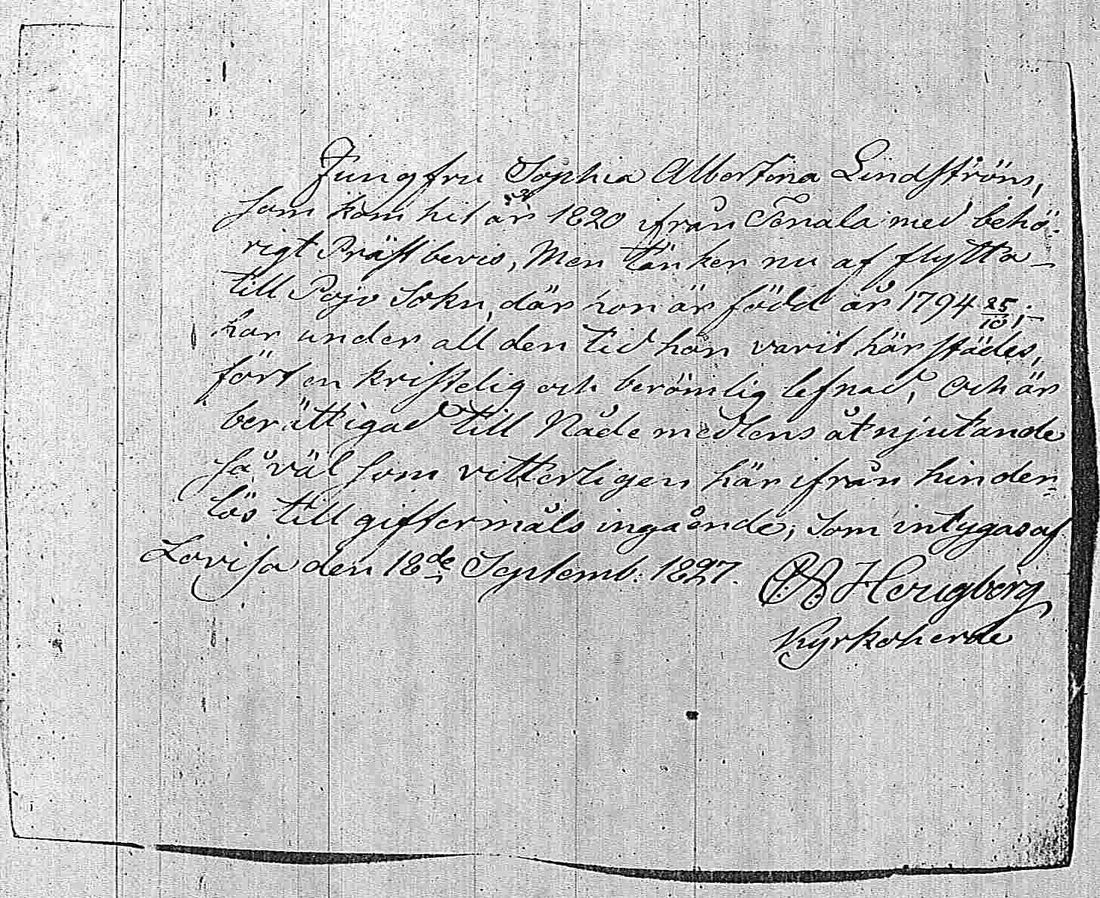 Jungfru Sophia Albertina Lindström,
som kom hit år 1820 ifrån Tenala med behö-
rigt Prästbevis, Men tänker nu af flytta
till Pojo Sokn, där hon är född år 1794 25/10,
har under all den tid hon varit härstädes,
fört en kristelig och berömlig lefnad, Och är
berättigad till Nådemedlens åtnjutande
så väl som vitterligen här ifrån hinder-
lös till giftermåls ingående; som intygas af
Lovisa den 18de Septemb. 1827.
Hougberg
Kyrkoherde